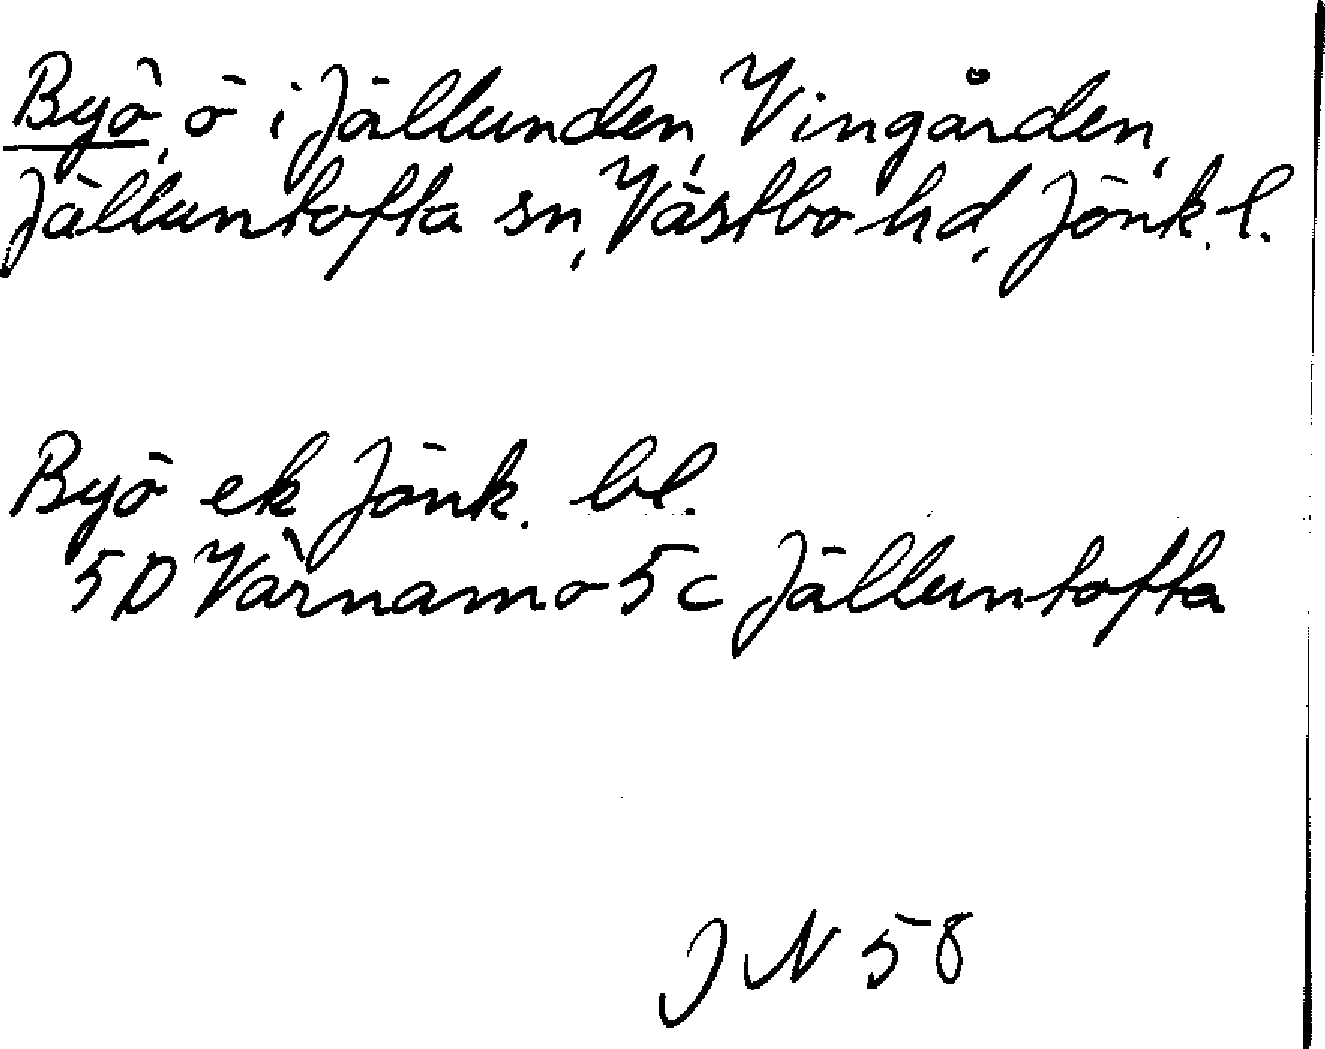 Byö, ö i Jällunden, Vingården,
Jälluntofta sn, Västbo hd, Jönk. l.
Byö ek Jönk. bl.
5D Värnamo 5c Jälluntofta
JN 58